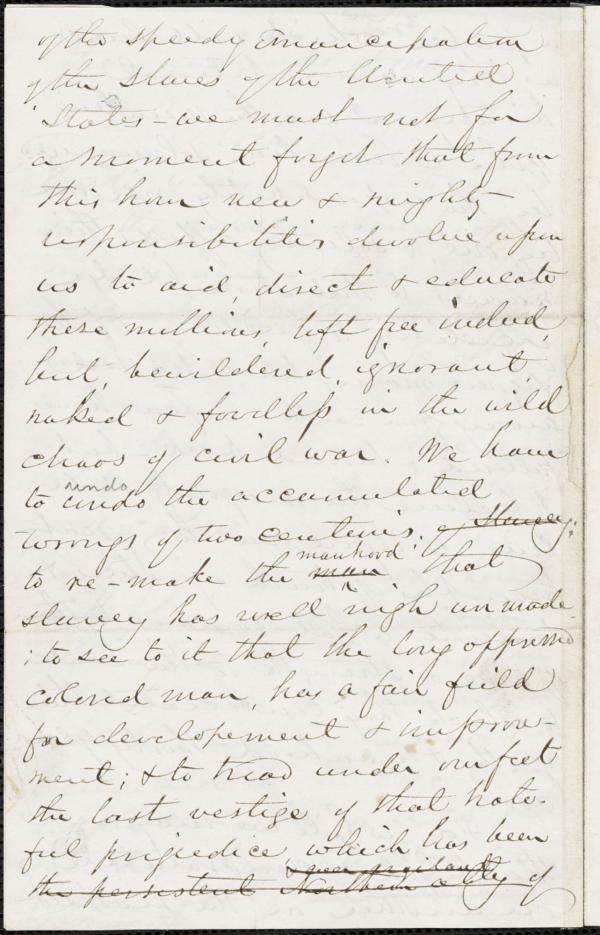 of the speedy Emancipation
of the slaves of the United
States - we must not for
a moment forget that from
this hour new & mighty
responsibilities devolve upon
us to aid, direct & educate
these millions, left free indeed,
but, bewildered, ignorant,
naked & foodless in the wild
chaos of civil war. We have
undo
to undo the accumulated
wrongs of two centuries; of slavery;
manhood
to re-make the man that
slavery has well nigh unmade
; to see to it that the long oppressed
colored man, has a fair field
for developement & improve-
ment; & to tread under our feet
the last vestige of that hate-
ful prejudice, which has been
ever vigilant
the persistent Northern ally of